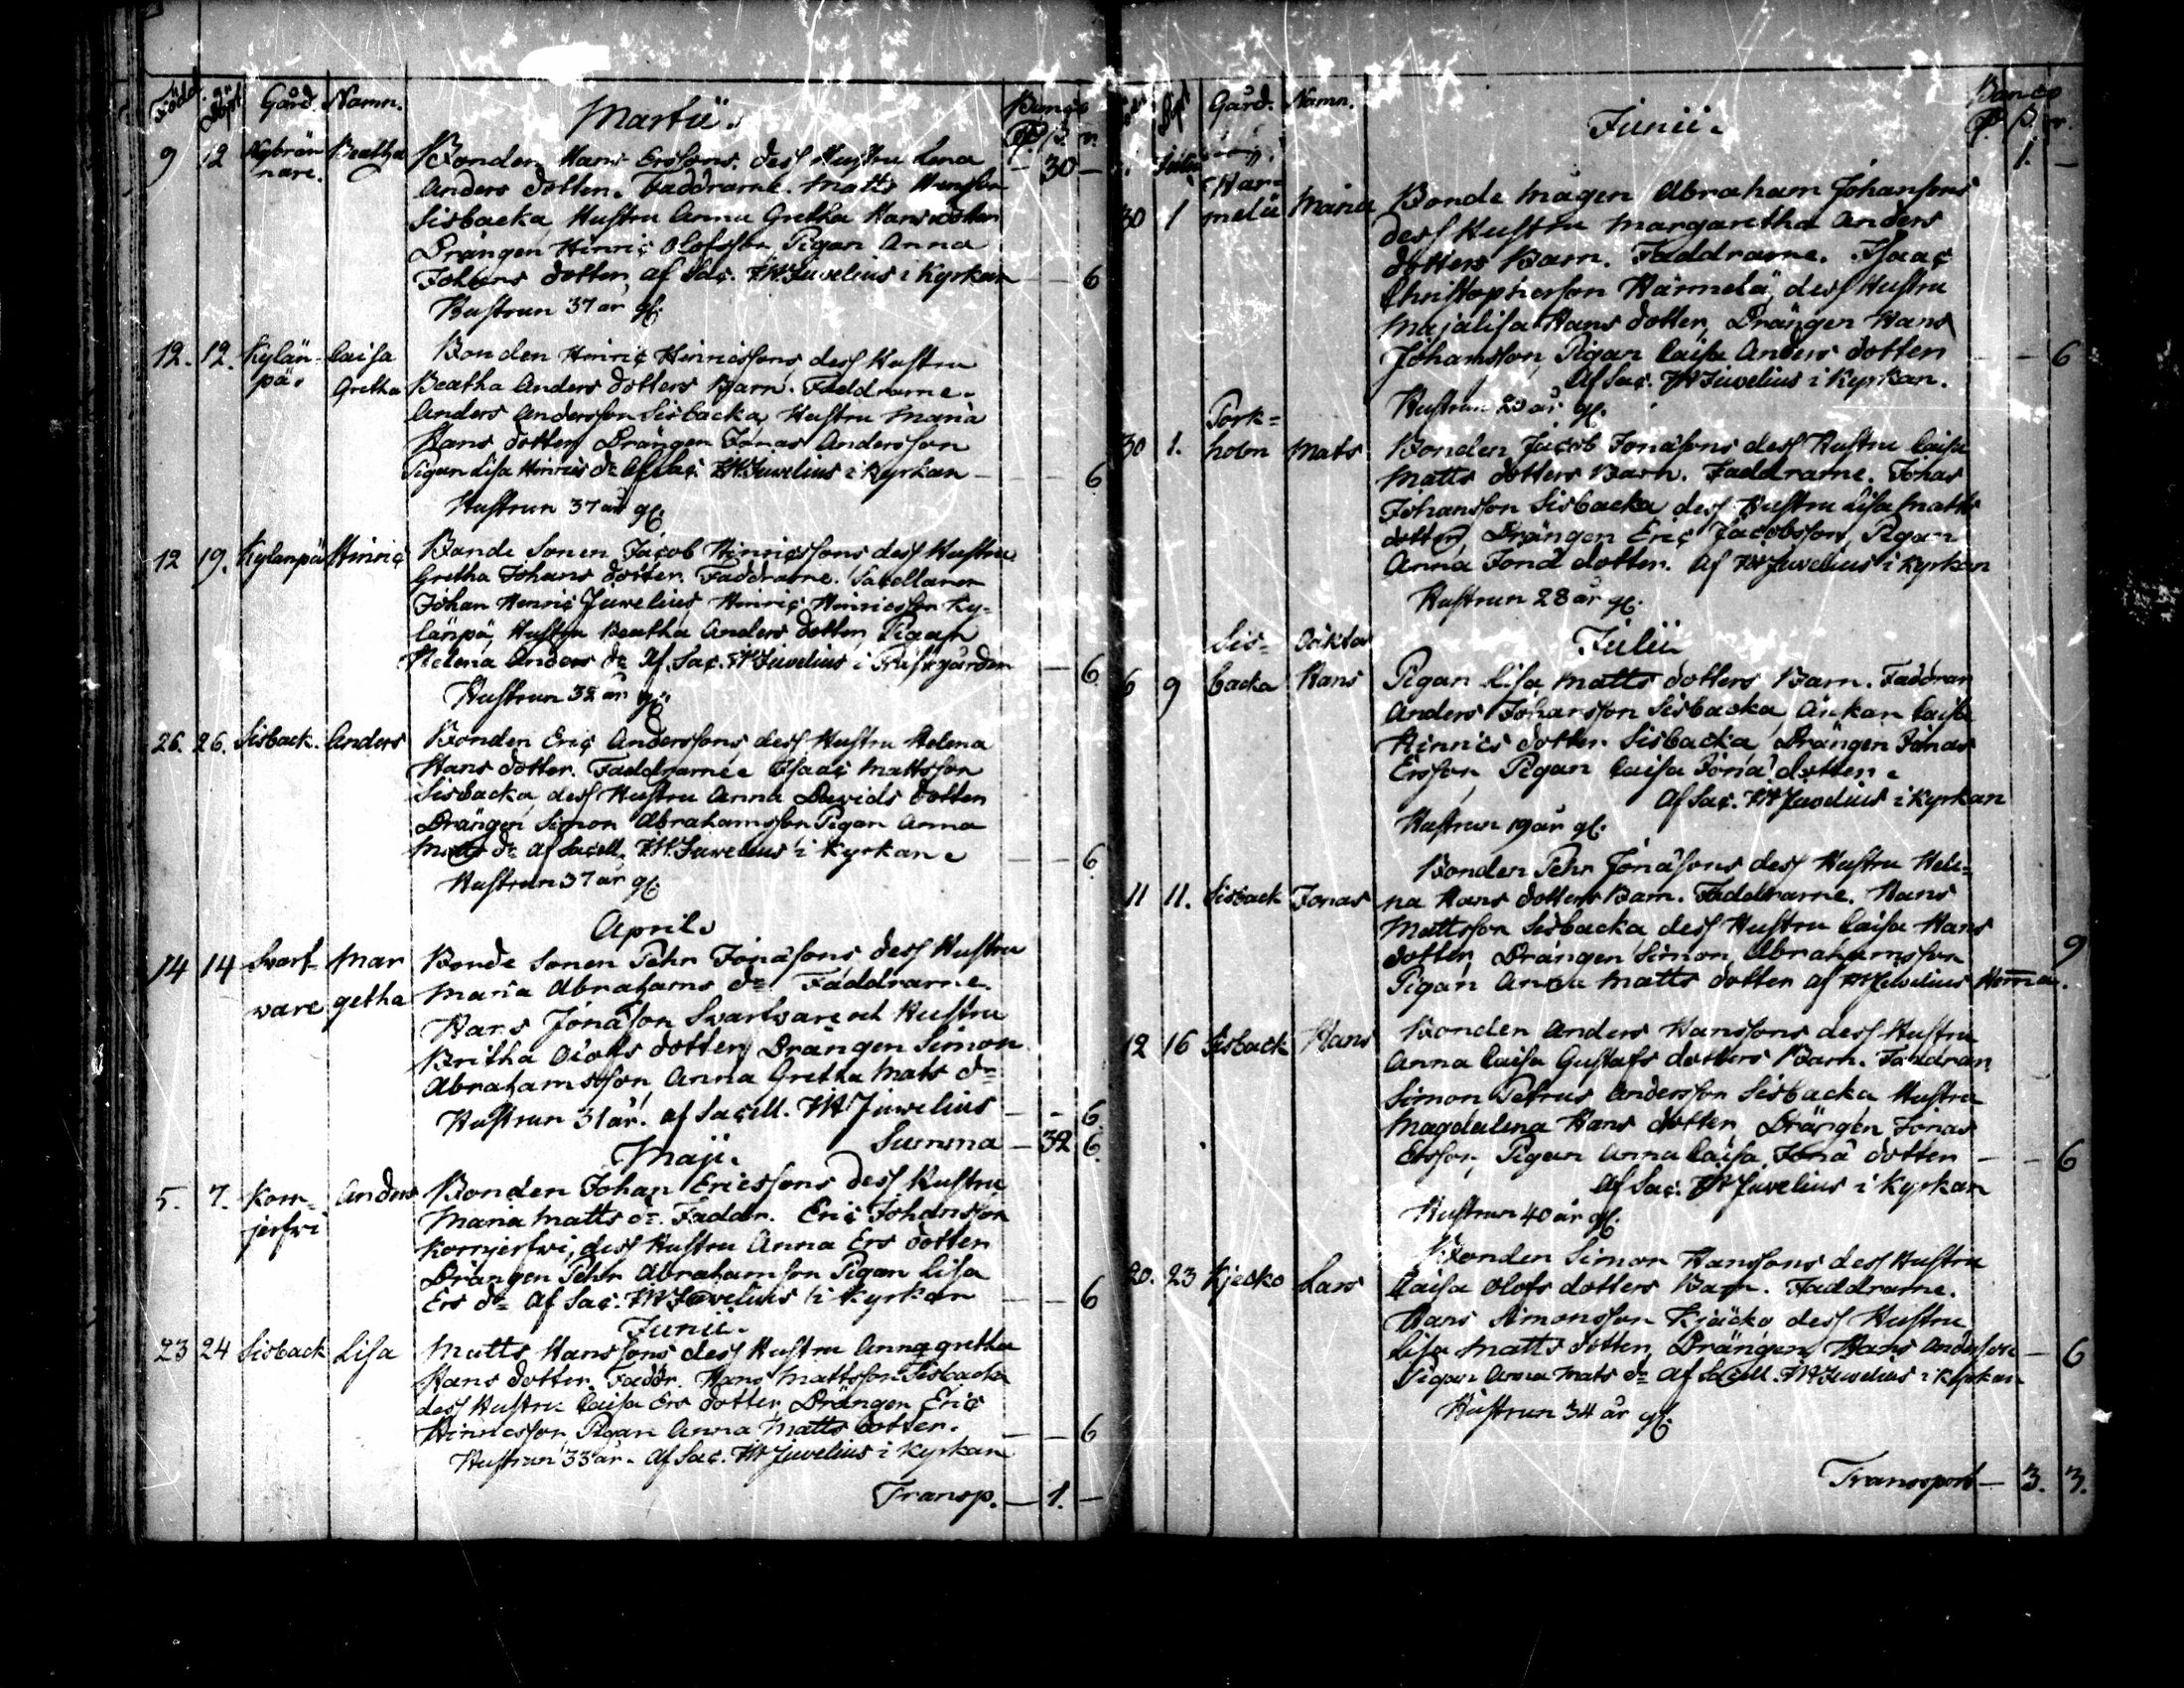 Född Döpt Gård. Namn. Martii. Banco
9 12 Nybrän Beatha Bonden Hans Erssons dess Hustru Lena — 30 —
nare. Anders dotter. Faddrarne. Matts Hansson
Sisbacka, Hustru Anna Gretha Hans dotter
Drängen Hinric Olofsson, Pigan Anna
Johans dotter, af Sac. JH Juvelius i Kyrkan — — 6
Hustrun 37 år gl.
12. 12. Kylän- Caisa Bonden Hinric Hinricssons dess Hustru
pä. Gretha Beatha Anders dotters Barn. Faddrarne.
Anders Andersson Sisbacka, Hustru Maria
Hans dotter, Drängen Jonas Andersson
Pigan Lisa Hinrics dr Af Sac. JH Juvelius i Kyrkan — 6
Hustrun 37 år gl.
12 19. Kylanpä Hinric Bonde Sonen Jacob Hinricssons dess Hustru
Gretha Johans dotter. Faddrarne. Sacellanen
Johan Henric Juvelius Hinric Hinricsson Ky-
länpä, Hustru Beatha Anders dotter, Pigan
Helena Anders dr Af Sac. JH Juvelius i Prästgården — 6
Hustrun 32 år gl.
26. 26. Sisback. Anders Bonden Eric Anderssons dess Hustru Helena
Hans dotter. Faddrarne Isaac Mattsson
Sisbacka, dess Hustru Anna Davids dotter
Drängen Simon Abrahamsson Pigan Anna
Matts dr af Sacell. JH Juvelius i Kyrkan — — 6
Hustrun 37 år gl.
April.
14 14 Svart- Mar Bonde Sonen Pehr Jonäsons dess Hustru
vare getha Maria Abrahams dr Faddrarne.
Hans Jonäson Svartvare och Hustru
Britha Olofs dotter, Drängen Simon
Abrahamsson, Anna Gretha Mats dr
Hustrun 31 år. af Sacell. JH Juvelius — - 6
Summa — 32 6.
Maji.
5. 7. Korr- Anders Bonden Johan Ericssons dess Hustru
jerfvi Maria Matts dr. Faddr. Eric Johansson
Korrjerfvi, dess Hustru Anna Ers dotter
Drängen Pehr Abrahamson Pigan Lisa
Ers dr Af Sac. JH Juvelius i Kyrkan — — 6
Junii.
23 24 Sisback Lisa Matts Hanssons dess Hustru Annagretha
Hans dotter. Faddr. Hans Mattsson Sisbacka
dess Hustru Caisa Ers dotter, Drängen Eric
Hinricsson, Pigan Anna Matts dotter. — — 6
Hustrun 33 år. Af Sac. JH Juvelius i Kyrkan
Transp. — 1. —
Gård. Namn. Junii. Banco
Julii 1. —
30 1 Här- Maria Bonde Mågen Abraham Johansons
melä dess Hustru Margaretha Anders
dotters Barn. Faddrarne. Isaac
Christopherson Härmelä, dess Hustru
Majalisa Hans dotter, Drängen Hans
Johansson, Pigan Caisa Anders dotter — — 6
Af Sac. JH Juvelius i Kyrkan.
Hustrun 20 år gl.
30 1. Pork- Mats Bonden Jacob Jonäsons dess Hustru Caisa
holm Matts dotters Barn. Faddrarne. Johas
Johansson Sisbacka dess Hustru Lisa Matts
dotter, Drängen Eric Jacobsson, Pigan
Anna Jonä dotter. Af JH Juvelius i Kyrkan
Hustrun 28 år gl.
Julii
6 9 Sis- Oäkta Pigan Lisa Matts dotters Barn. Faddran
backa Hans Anders Johansson Sisbacka, Änkan Caisa
Hinrics dotter. Sisbacka, Drängen Jonas
Ersson, Pigan Caisa Jonä dotter.
Af Sac. JH Juvelius i Kyrkan
Hustrun 19 år gl.
Bonden Pehr Jonäsons dess Hustru Hele-
11 11. Sisback Jonas na Hans dotters Barn. Faddrarne. Hans
Mattsson Sisbacka dess Hustru Caisa Hans
dotter, Drängen Simon Abrahamsson 9
Pigan Anna Matts dotter af JH Juvelius Hemma.
12 16 Sisback Hans Bonden Anders Hanssons dess Hustru
Anna Caisa Gustafs dotters Barn. Faddran
Simon Petrus Andersson Sisbacka, Hustru
Magdalena Hans dotter, Drängen Jonas
Ersson, Pigan Anna Caisa Jonä dotter — — 6
Af Sac. JH Juvelius i Kyrkan
Hustrun 40 år gl.
Bonden Simon Hanssons dess Hustru
20. 23 Kjecko Lars Caisa Olofs dotters Barn. Faddrarne.
Hans Simonsson Kjäcko dess Hustru
Lisa Matts dotter, Drängen Hans Andersson — 6
Pigan Anna Mats dr Af Sacell. JH Juvelius i Kyrkan
Hustrun 34 år gl.
Transport — 3. 3.